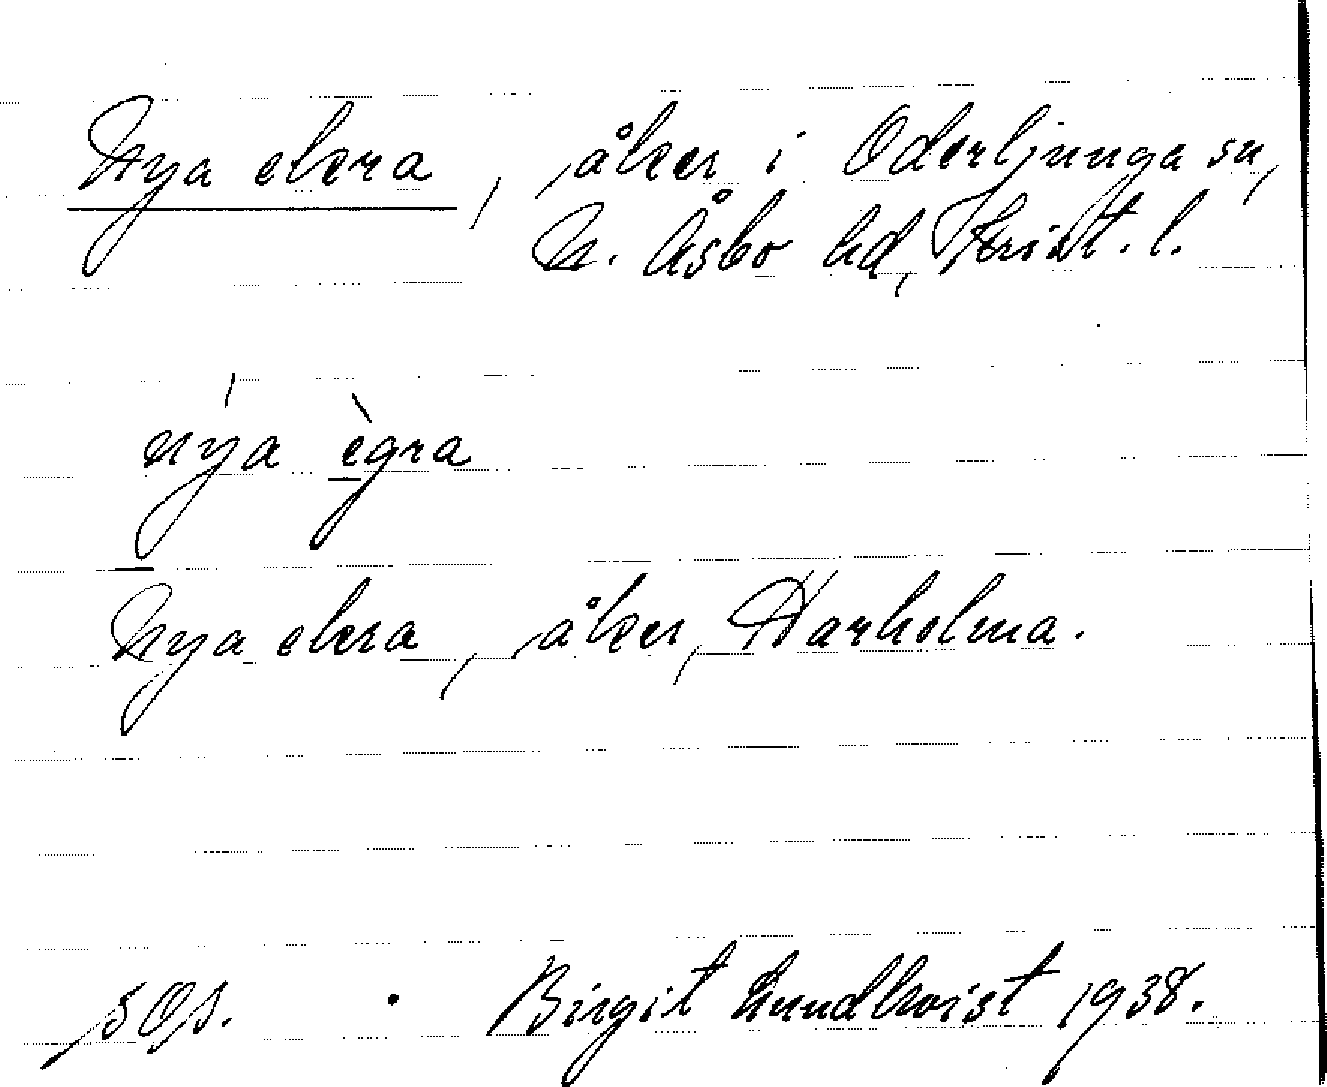 Nya ekra, åker i Oderljunga sn,
N. Åsbo hd, Krist. l.
nýa ègra
Nya ekra, åker, Harholma.
Birgit Lundkvist 1938.